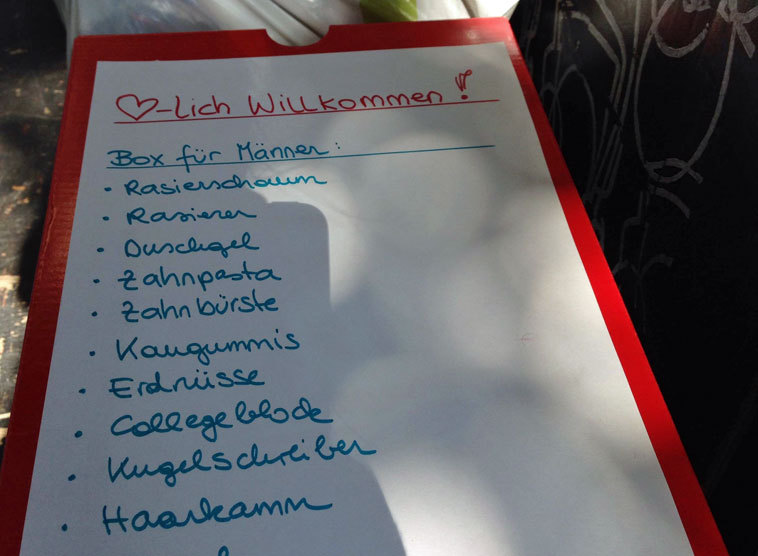 ♡-lich Willkommen!
Box für Männer:
· Rasierschaum
· Rasierer
· Duschgel
· Zahnpasta
· Zahnbürste
· Kaugummis
· Erdnüsse
· Collegeblock
· Kugelschreiber
· Haarkamm